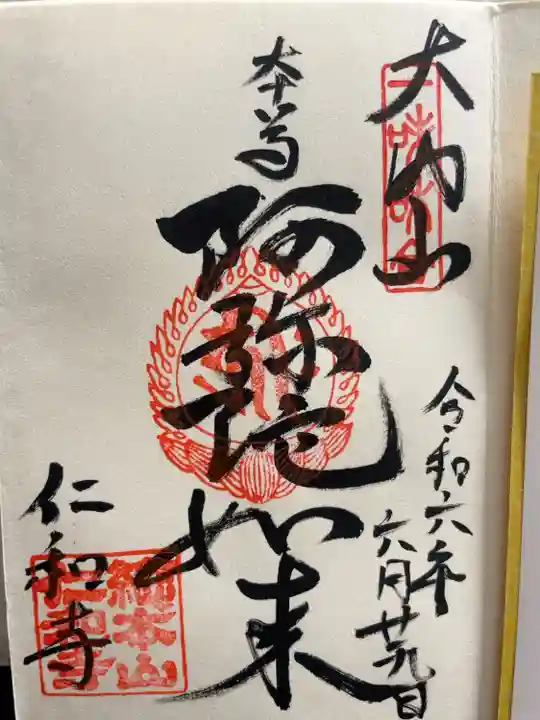 大内山
令和六年
六月廿九日
本尊
阿弥陀如来
仁和寺
総本山
仁和寺